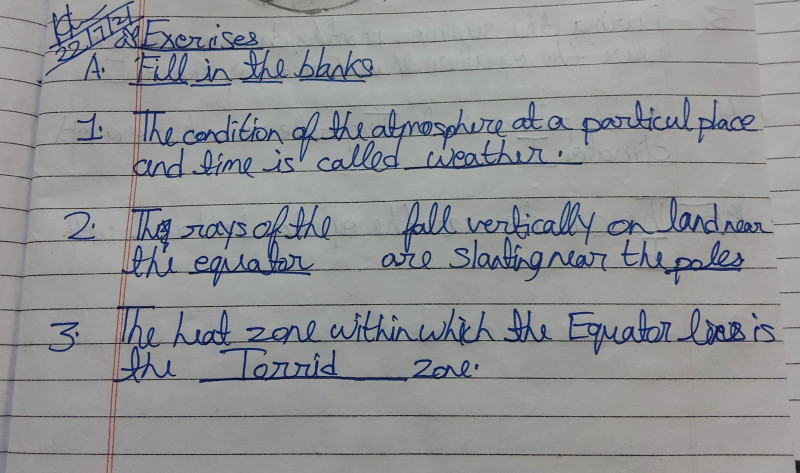 22/7/21
Exercises
A. Fill in the blanks
1. The condition of the atmosphere at a particul place
and time is called weather.
2. The rays of the fall vertically on land near
the equator are slanting near the poles
3. The heat zone within which the Equator lies is
the Torrid zone.